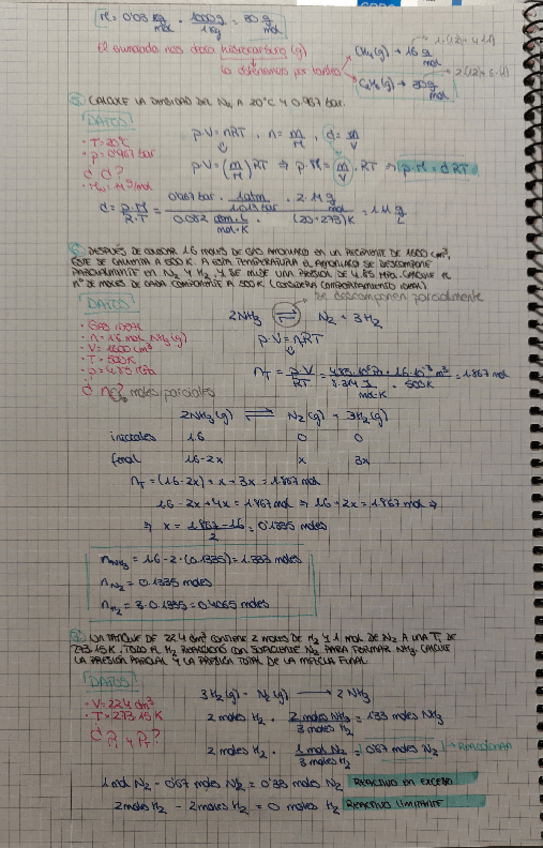 M = 0'03 kg/mol · 1000g/1kg = 30 g/mol
El enunciado nos dice: hidrocarburo (g)
lo obtenemos por tanteo
CH4(g) → 16 g/mol
1·(12)+4·(1)
C2H6(g) → 30 g/mol
2·(12)+6·(1)
5. CALCULE LA DENSIDAD DEL N2 A 20°C Y 0.967 bar.
DATOS
· T = 20°C
· p = 0'967 bar
¿ d ?
p·V = nRT , n = m/M , d = m/V
p·V = (m/M) RT ⇒ p·M = m/V · RT ⇒ p·M = d RT
d = p·M/R·T = 0'967 bar · 1atm/1'013 bar · 2·14 g/mol / 0'082 atm·L/mol·K · (20+273)K = 1'11 g/L
6. DESPUÉS DE COLOCAR 1.6 moles DE GAS AMONIACO EN UN RECIPIENTE DE 1600 cm³,
ESTE SE CALIENTA A 500 K. A ESTA TEMPERATURA EL AMONIACO SE DESCOMPONE
PARCIALMENTE EN N2 Y H2, Y SE MIDE UNA PRESIÓN DE 4.85 MPa. CALCULE EL
nº DE MOLES DE CADA COMPONENTE A 500K (CONSIDERA COMPORTAMIENTO IDEAL)
se descomponen parcialmente
DATOS
· GAS IDEAL
· n = 1'6 mol NH3(g)
· V = 1600 cm³
· T = 500K
· p = 4'85 MPa
¿ n? moles parciales
2NH3 ⇌ N2 + 3H2
p·V = nRT
nT = p·V/RT = 4'85·10⁶Pa · 1'6·10⁻³m³ / 8.314 J/mol·K · 500K = 1'867 mol
2NH3(g) ⇌ N2(g) + 3H2(g)
iniciales 1'6 0 0
final 1'6-2x x 3x
nT = (1'6-2x) + x + 3x = 1'867 mol
1'6 - 2x + 4x = 1'867 mol ⇒ 1'6 + 2x = 1'867 mol ⇒
⇒ x = 1'867-1'6/2 = 0'1335 moles
nNH3 = 1'6 - 2·(0'1335) = 1'333 moles
nN2 = 0'1335 moles
nH2 = 3·0'1335 = 0'4005 moles
7. UN TANQUE DE 22'4 dm³ CONTIENE 2 moles DE H2 Y 1 mol DE N2 A UNA T. DE
273'15 K. TODO EL H2 REACCIONÓ CON SUFICIENTE N2 PARA FORMAR NH3. CALCULE
LA PRESIÓN PARCIAL Y LA PRESIÓN TOTAL DE LA MEZCLA FINAL
DATOS
· V = 22'4 dm³
· T = 273'15 K
¿ Pi y PT ?
3H2(g) + N2(g) → 2 NH3
2 moles H2 · 2 moles NH3/3 moles H2 = 1'33 moles NH3
2 moles H2 · 1 mol N2/3 moles H2 = 0'67 moles N2 → REACCIONAN
1 mol N2 - 0'67 moles N2 = 0'33 moles N2 REACTIVO EN EXCESO
2 moles H2 - 2 moles H2 = 0 moles H2 REACTIVO LIMITANTE